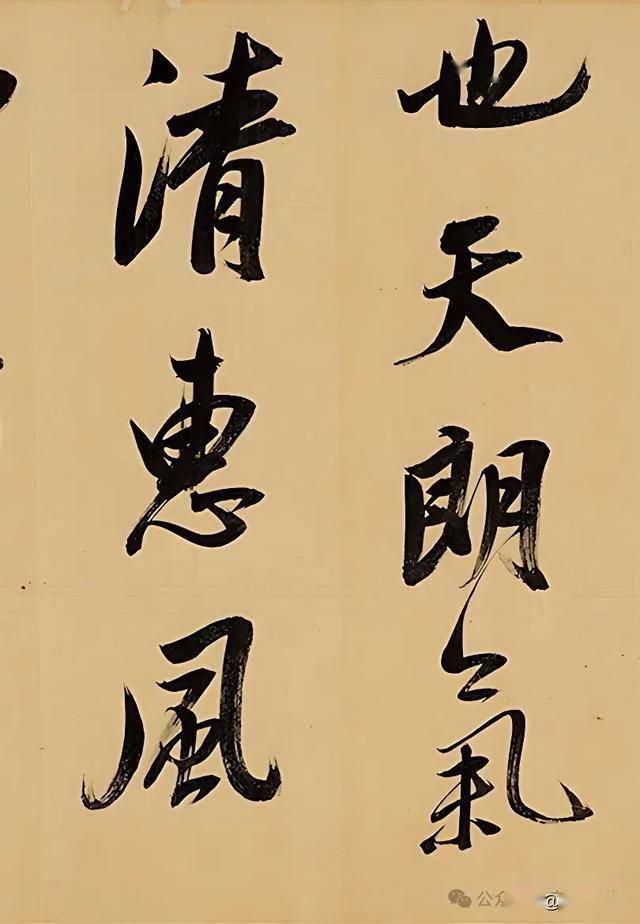 也天朗氣
清惠風
公众
@